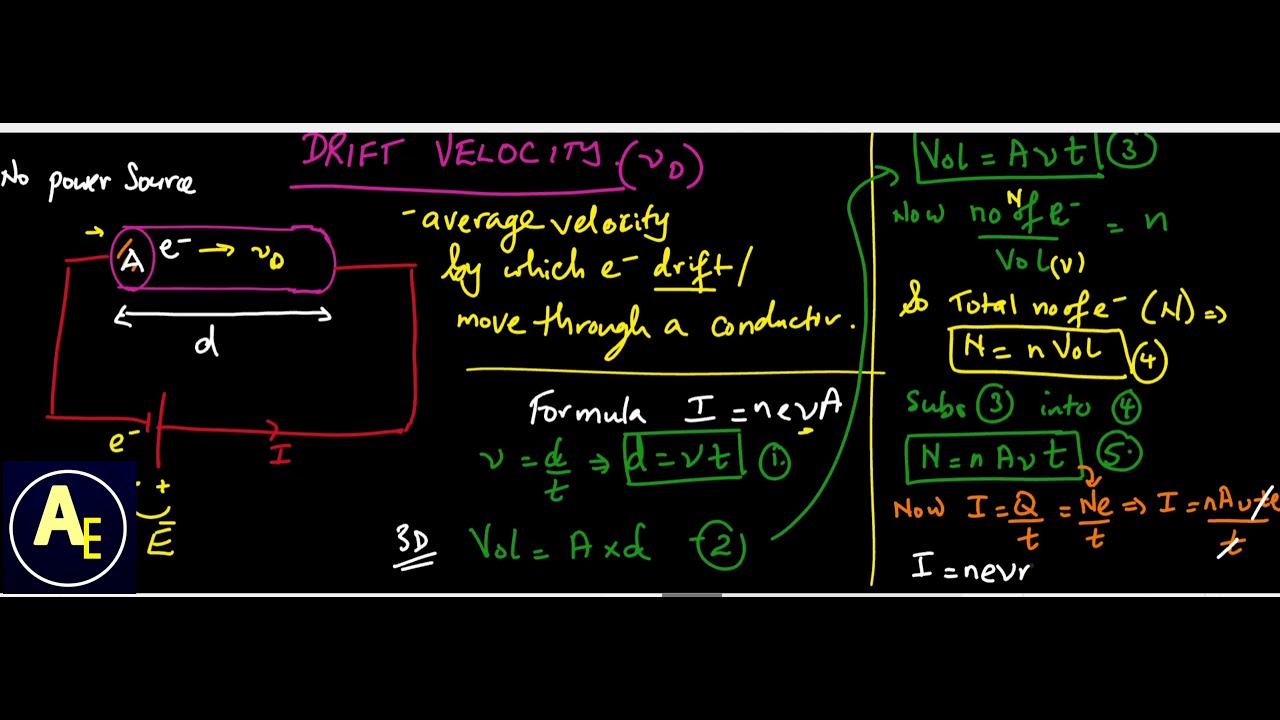 DRIFT VELOCITY (vD)
No power Source
A e- → vD
d
e-
I
+
E
AE
-average velocity
by which e- drift/
move through a conductor.
Formula I = nevA
v = d/t ⇒ d = vt ①
3D Vol = A x d ②
Vol = Avt ③
Now no of e- N / Vol (v) = n
So Total no of e- (N) ⇒
N = n Vol ④
Subs ③ into ④
N = n A v t ⑤.
Now I = Q/t = Ne/t ⇒ I = nAvte/t
I = nev